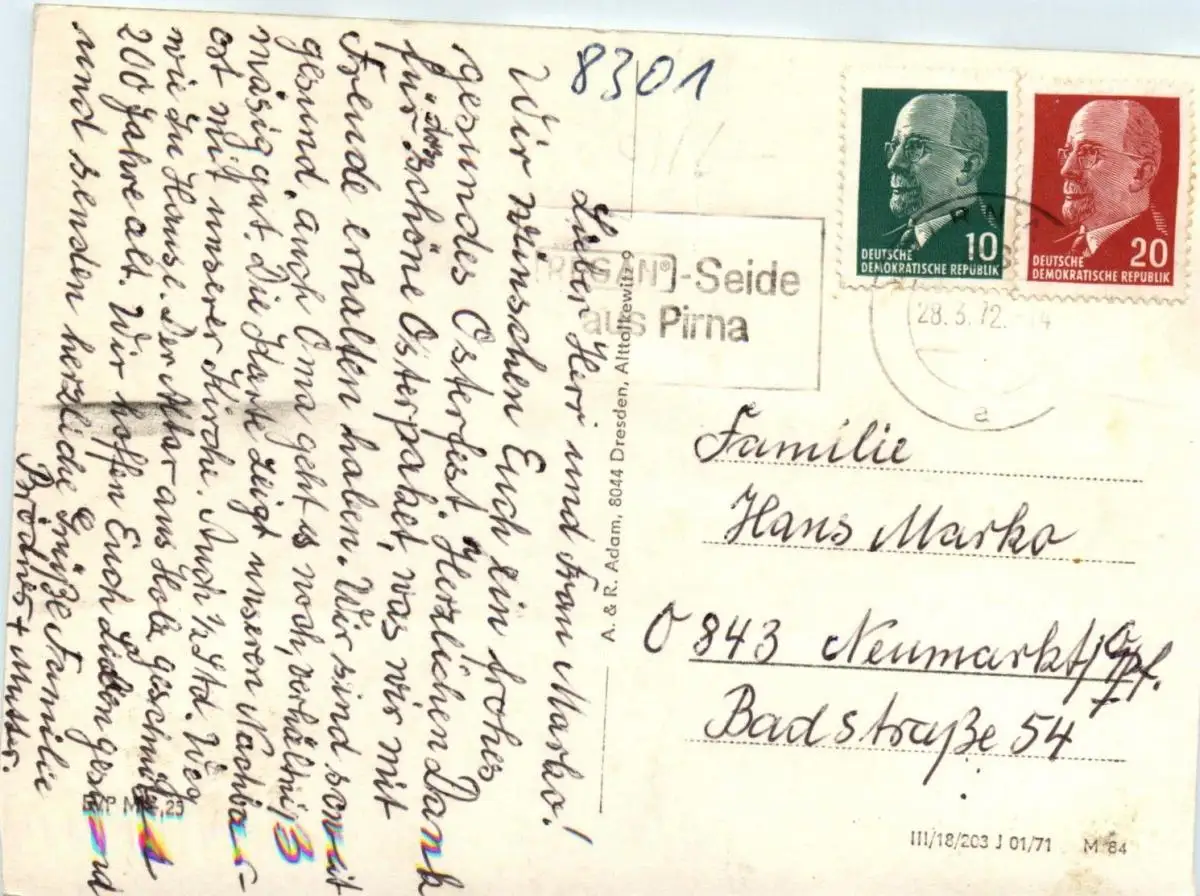 8301
Lieber Herr und Frau Marko!
Wir wünschen Euch ein frohes
gesundes Osterfest. Herzlichen Dank
für das schöne Osterpaket, was wir mit
Freude erhalten haben. Wir sind soweit
gesund, auch Oma geht es noch, verhältniß
mäsig gut. Die Karte zeigt unseren Nachbar-
ort mit unserer Kirche. Auch ½ Std. Weg
wie zu Hause. Der Altar aus Holz geschnitzt
200 Jahre alt. Wir hoffen Euch Lieben gesund
und senden herzliche Grüße Familie
+ Mutter.
EVP M ,25
A. & R. Adam, 8044 Dresden, Alttolkewitz 9
REGAN®-Seide
aus Pirna
DEUTSCHE
DEMOKRATISCHE REPUBLIK
10
DEUTSCHE
DEMOKRATISCHE REPUBLIK
20
28.3.72.-14
a
Familie
Hans Marko
843 Neumarkt/Opf.
Badstraße 54
III/18/203 J 01/71 M 84